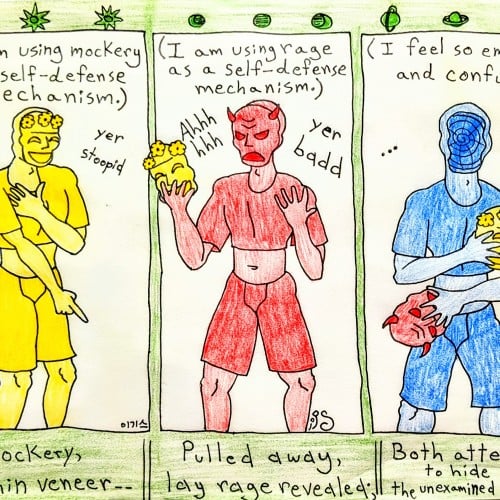 using mockery
self-defense
mechanism.)
yer
stoopid
이기스
mockery,
veneer--
(I am using rage
as a self-defense
mechanism.)
Ahhh
hhh
yer
badd
Pulled away,
lay rage revealed;
(I feel so
and
...
Both
to hide
the unexamined